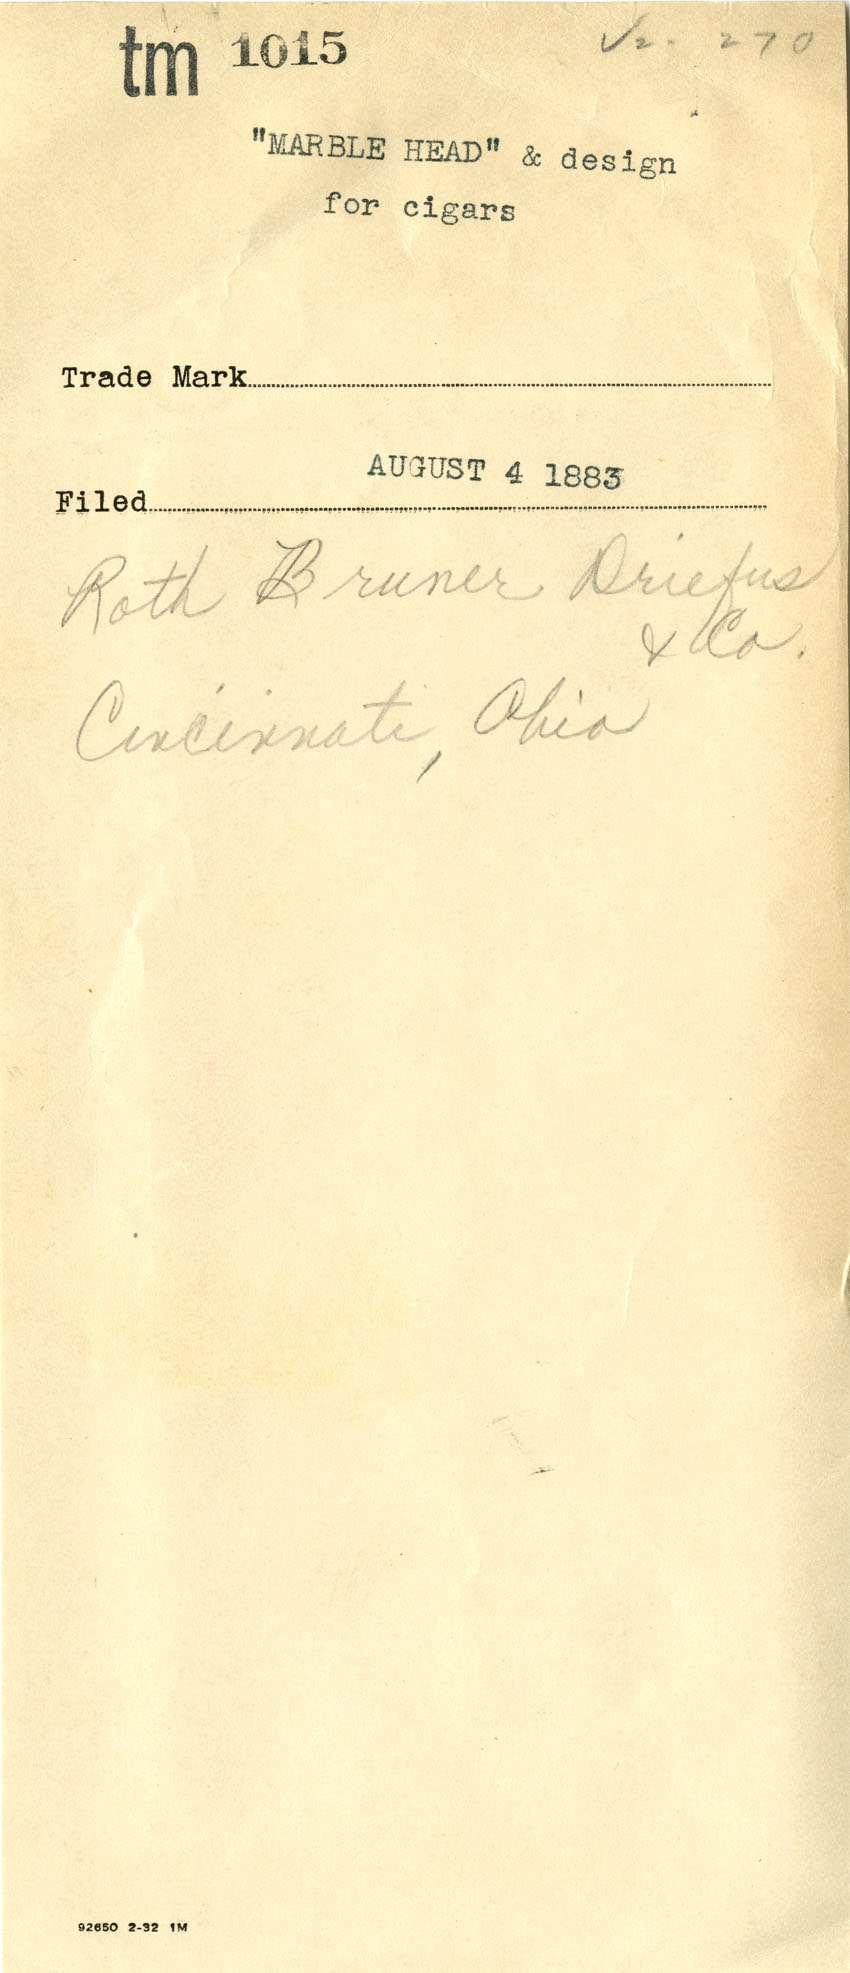 tm 1015
V2- 270
"MARBLE HEAD" & design
for cigars
Trade Mark
AUGUST 4 1883
Filed
Roth Bruner Driefus
& Co.
Cincinnati, Ohio
92650 2-32 1M